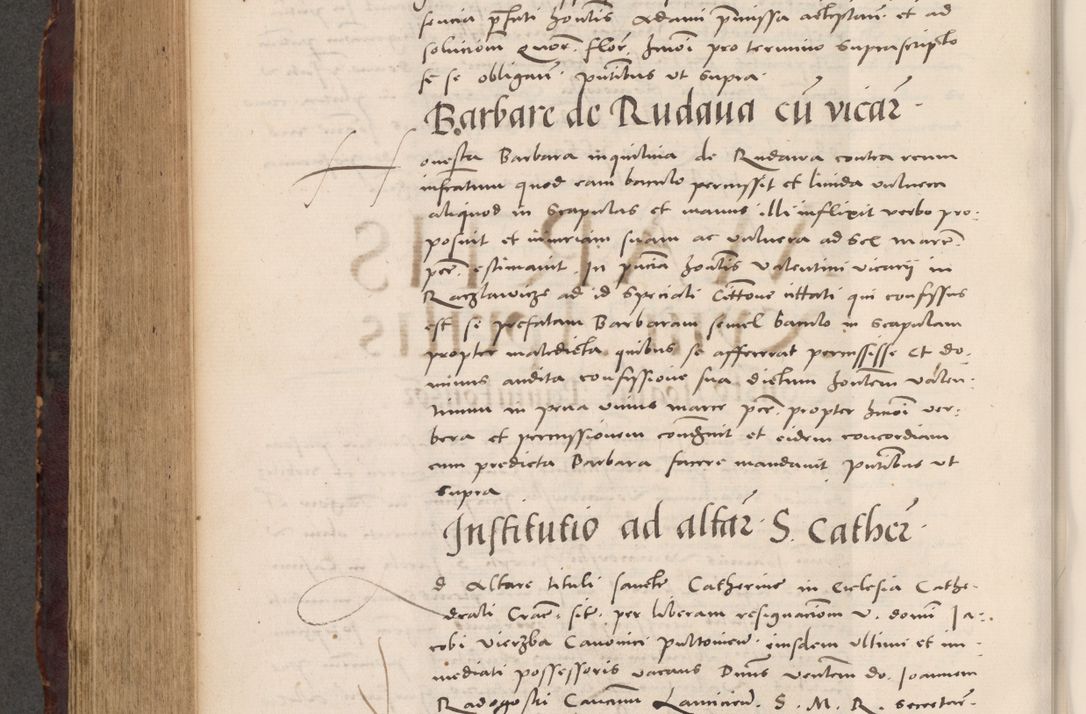 sencia prefati honlis Adami premissa acceptan. et ad
solucionem quor. flor. hmoi pro termino suprascripto
se se obligavit. pntibus ut supra.
Barbare de Rudaua cū vicar̄.
onesta Barbara inquilina de Rudawa contra reum
infratum quod eam baculo permyssit et livida vulnera
aliquod in scapulas et manus illi inflixit verbo pro:
posuit et iniuriam suam ac vulnera ad sex marc.
pec. estimavit. In pncia honlis Valentini vicarii in
Raczlawicze ad id speciali Cittone cittati qui confyssus
est se prefatam Barbaram semel baculo in scapulam
propter maledicta quibus se affecerat permyssisse Et do.
minus audita confyssione sua dictum honlem Valen
tinum in pena unius marce pec. propter hmoi ver:
bera et permyssionem condemnit et eidem concordiam
cum predicta Barbara facere mandavit pntibus ut
supra
Institutio ad altar̄. S. Cather̄.
d Altare tituli sancte Catherine in Ecclesia Cathe.
drali Crac. sit. per liberam resignacionem V. domi Ja.
cobi Vierzba Canonici pultovien. eiusdem ultimi et im
mediati possessoris vacans Dnus ventem do. Joannem
Radogoski Canonicum Lanicien. S. M. R. secretar.